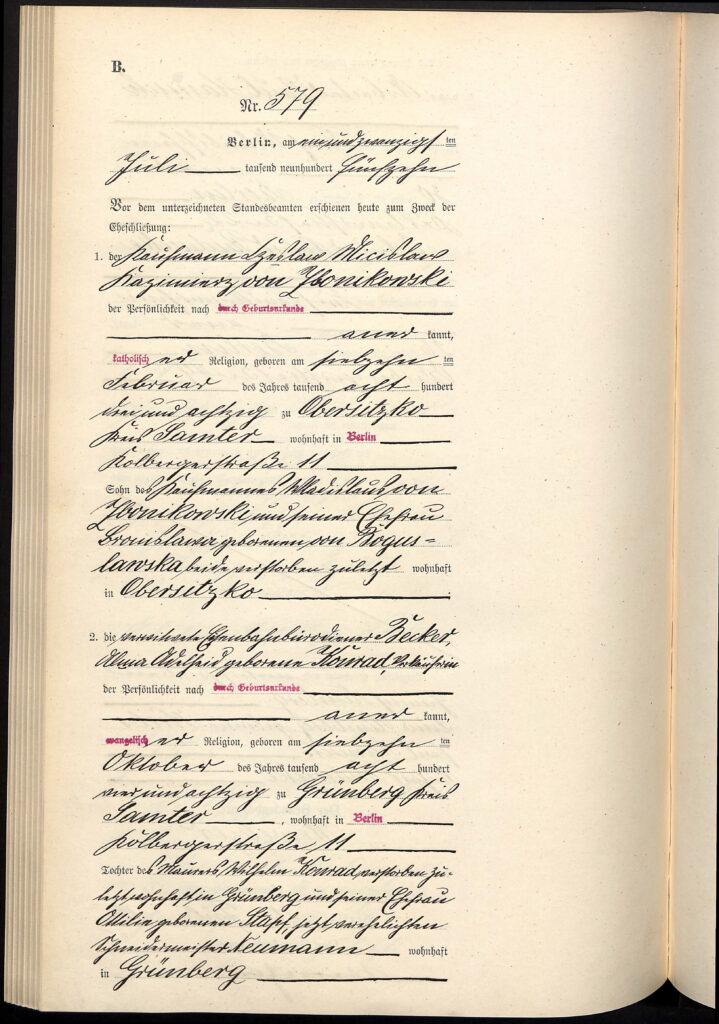 B.
Nr. 579
Berlin, am einundzwanzigs ten
Juli tausend neunhundert fünfzehn
Vor dem unterzeichneten Standesbeamten erschienen heute zum Zweck der
Eheschließung:
1. der Kaufmann Czeslaw Micislaw
Kazimierz von Zbonikowski
der Persönlichkeit nach durch Geburtsurkunde
aner kannt,
katholisch er Religion, geboren am siebzehn ten
Februar des Jahres tausend acht hundert
drei und achtzig zu Obersitzko
Kreis Samter wohnhaft in Berlin
Kolbergerstraße 11
Sohn des Kaufmannes Wladislaus von
Zbonikowski und seiner Ehefrau
Bronislawa geborenen von Bogus=
lawska beide verstorben zuletzt wohnhaft
in Obersitzko
2. die verwitwete Eisenbahnbürodiener Becker,
Alma Adelheid geborene Konrad, Verkäuferin
der Persönlichkeit nach durch Geburtsurkunde
aner kannt,
evangelisch er Religion, geboren am siebzehn ten
Oktober des Jahres tausend acht hundert
vier und achtzig zu Grünberg Kreis
Samter, wohnhaft in Berlin
Kolbergerstraße 11
Tochter des Maurers Wilhelm Konrad, verstorben zu-
letzt wohnhaft in Grünberg und seiner Ehefrau
Ottilie geborenen Stapf, jetzt verehelichten
Schneidermeister Neumann wohnhaft
in Grünberg